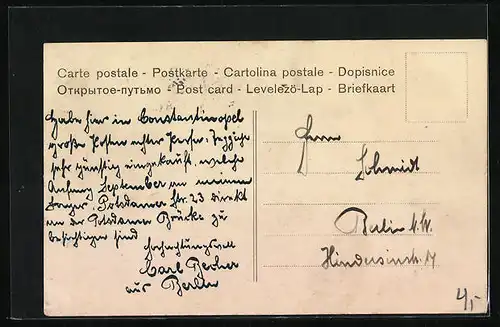 Carte postale - Postkarte - Cartolina postale - Dopisnice
Открытое-путьмо - Post card - Levelező-Lap - Briefkaart
Habe hier in Constantinopel
große Posten echter Perser-Teppiche
sehr günstig eingekauft, welche
Anfang September an meinem
Lager: Potsdamer Str. 23 direkt
an der Potsdamer Brücke zu
besichtigen sind
Hochachtungsvoll
Carl Becker
aus Berlin
Herrn
Schmidt
Berlin N.W.
Hindersinstr.
4,-